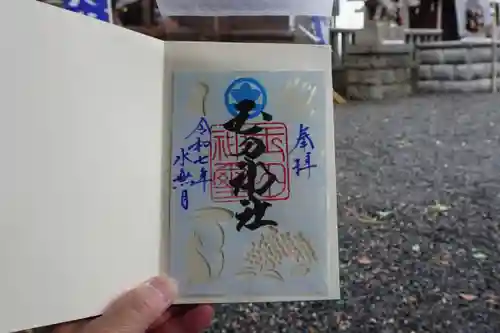 奉拝
玉乃神社
令和七年
水無月